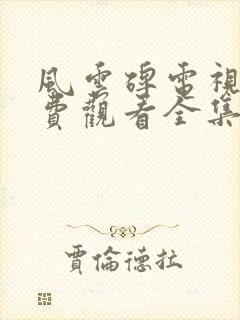 風雲碑電視
費觀看全集
賈倫德拉